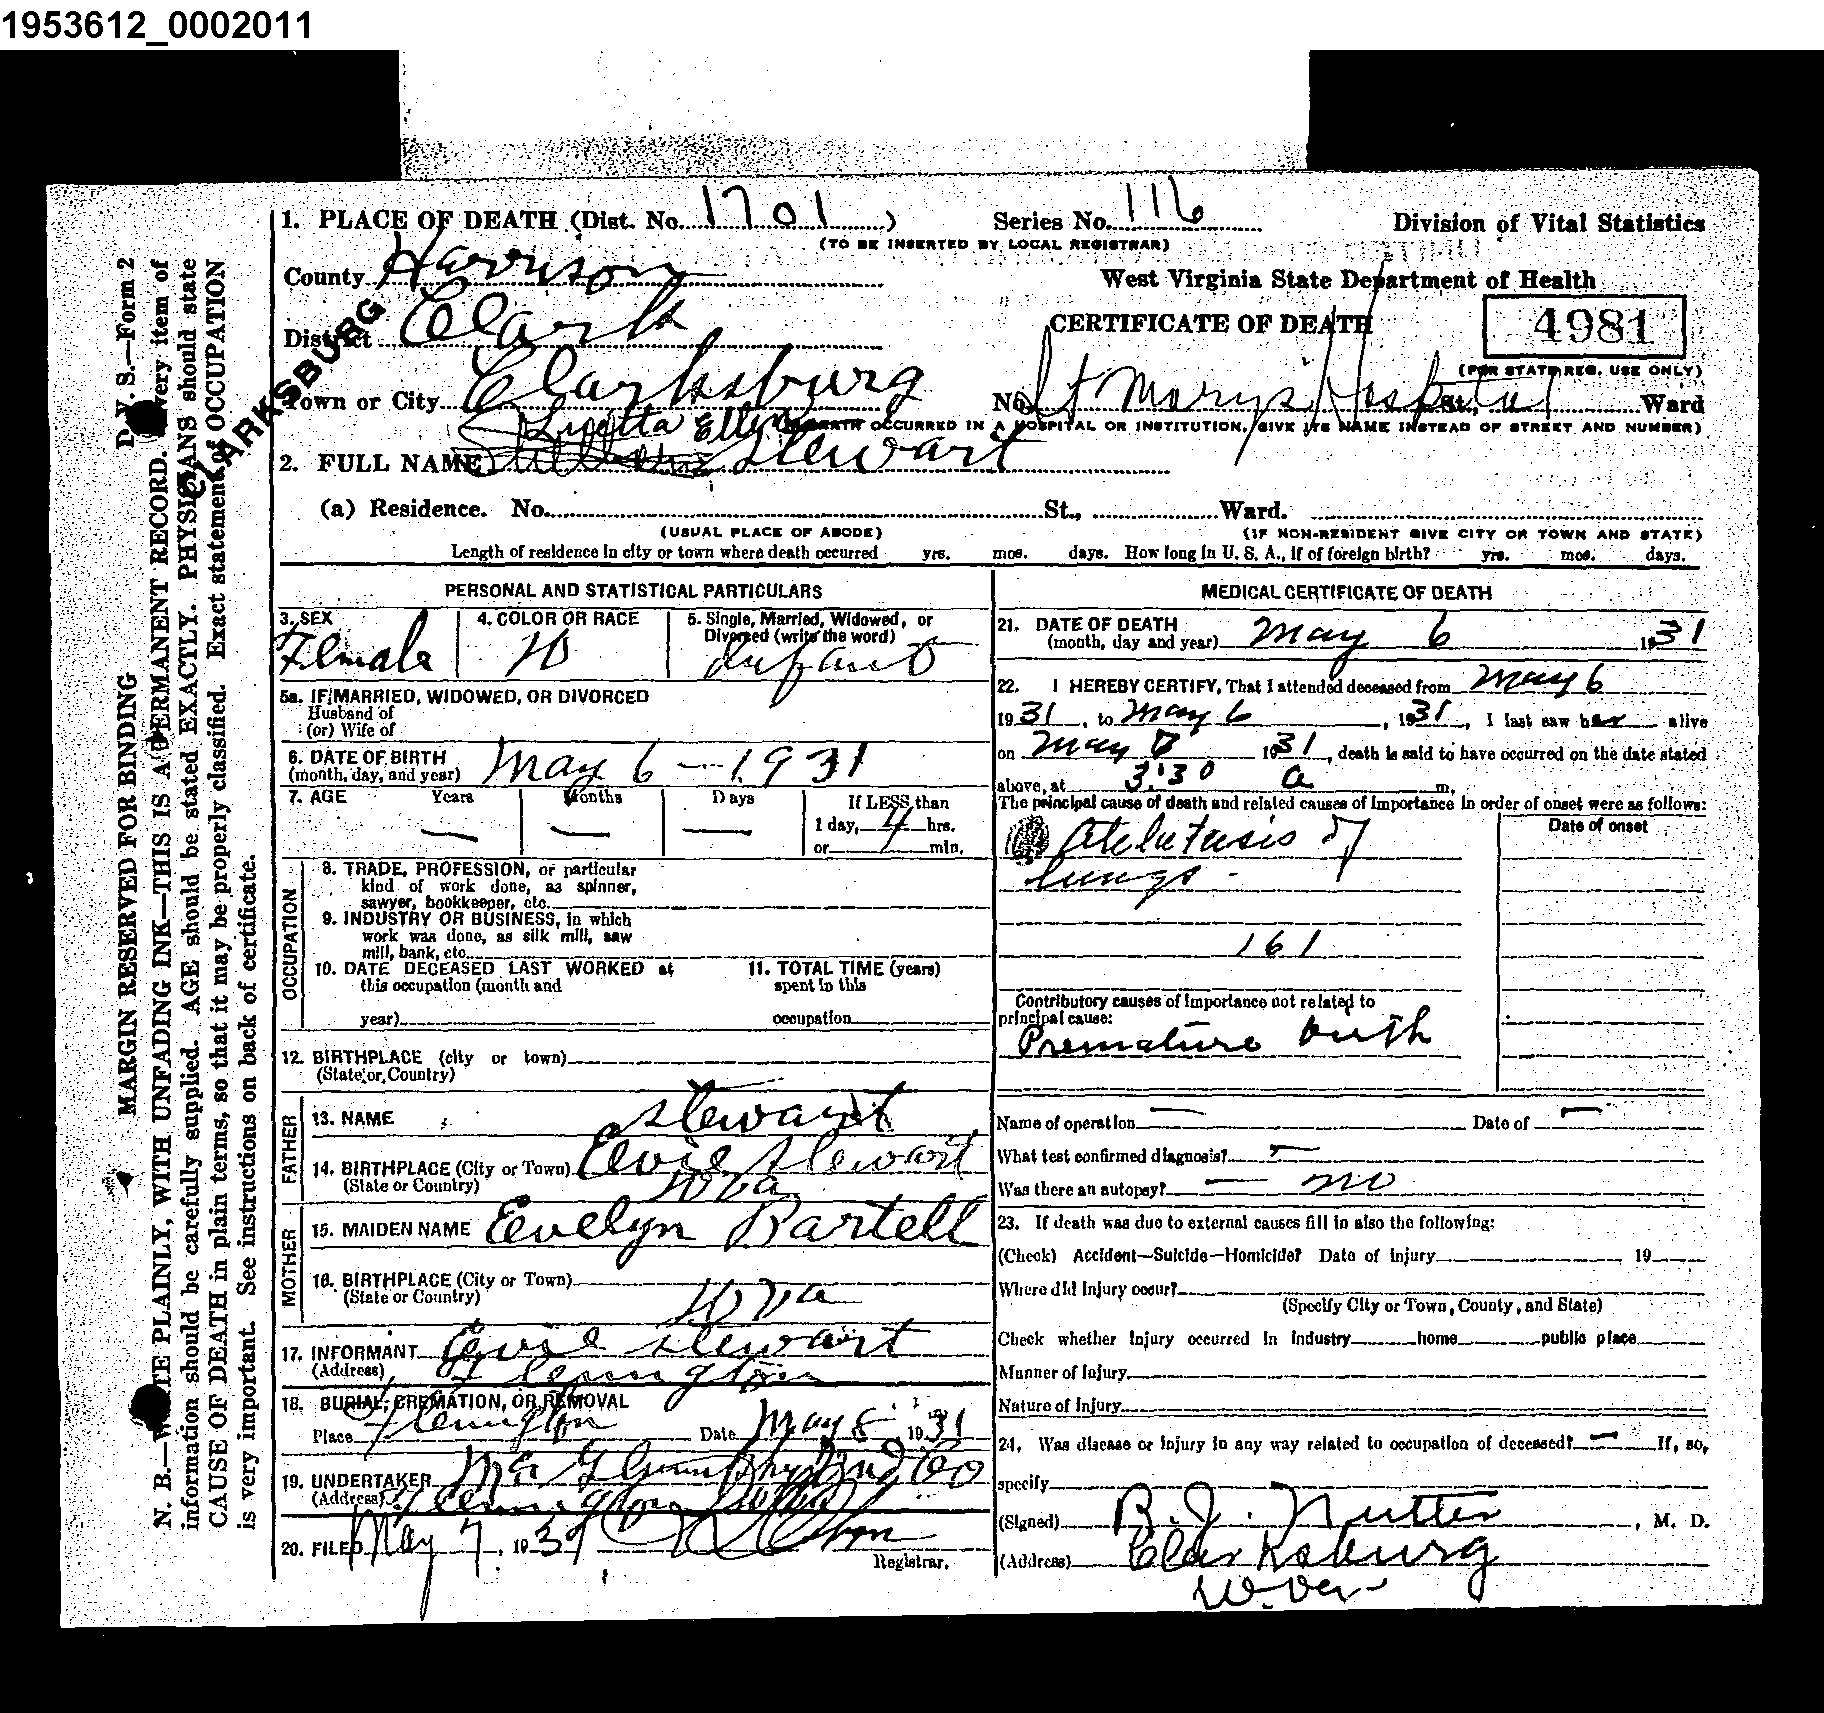 1953612_0002011
1. PLACE OF DEATH (Dist. No. 1701) Series No. 116 Division of Vital Statistics
(TO BE INSERTED BY LOCAL REGISTRAR)
County Harrison West Virginia State Department of Health
District Clark CERTIFICATE OF DEATH 4981
CLARKSBURG
(FOR STATE REG. USE ONLY)
Town or City Clarksburg No. St Marys Hospital St., Ward
OCCURRED IN A HOSPITAL OR INSTITUTION, GIVE ITS NAME INSTEAD OF STREET AND NUMBER)
2. FULL NAME Ellen Stewart
(a) Residence. No. St., Ward.
(USUAL PLACE OF ABODE) (IF NON-RESIDENT GIVE CITY OR TOWN AND STATE)
Length of residence in city or town where death occurred yrs. mos. days. How long in U. S. A., if of foreign birth? yrs. mos. days.
PERSONAL AND STATISTICAL PARTICULARS
3. SEX 4. COLOR OR RACE 5. Single, Married, Widowed, or
Divorced (write the word)
Female W Infant
5a. IF MARRIED, WIDOWED, OR DIVORCED
Husband of
(or) Wife of
6. DATE OF BIRTH
(month, day, and year) May 6 - 1931
7. AGE Years Months Days If LESS than
1 day, 4 hrs.
or min.
OCCUPATION
8. TRADE, PROFESSION, or particular
kind of work done, as spinner,
sawyer, bookkeeper, etc.
9. INDUSTRY OR BUSINESS, in which
work was done, as silk mill, saw
mill, bank, etc.
10. DATE DECEASED LAST WORKED at
this occupation (month and
year)
11. TOTAL TIME (years)
spent in this
occupation
12. BIRTHPLACE (city or town)
(State or Country)
FATHER
13. NAME Stewart
14. BIRTHPLACE (City or Town) Elvie Stewart
(State or Country) W Va
MOTHER
15. MAIDEN NAME Evelyn Bartell
16. BIRTHPLACE (City or Town)
(State or Country) W Va
17. INFORMANT Stewart
(Address) Flemington
18. BURIAL, CREMATION, OR REMOVAL
Place Flemington Date May 8 1931
19. UNDERTAKER
(Address) Flemington W Va
20. FILED May 7, 1931 Registrar.
MEDICAL CERTIFICATE OF DEATH
21. DATE OF DEATH
(month, day and year) May 6 1931
22. I HEREBY CERTIFY, That I attended deceased from May 6
1931, to May 6, 1931, I last saw her alive
on May 6 1931, death is said to have occurred on the date stated
above, at 3:30 a m.
The principal cause of death and related causes of importance in order of onset were as follows:
Date of onset
Atelectasis of
lungs.
161
Contributory causes of importance not related to
principal cause:
Premature birth
Name of operation — Date of —
What test confirmed diagnosis? —
Was there an autopsy? — no
23. If death was due to external causes fill in also the following:
(Check) Accident—Suicide—Homicide? Date of injury 19
Where did injury occur?
(Specify City or Town, County, and State)
Check whether injury occurred in industry home public place
Manner of injury
Nature of injury
24. Was disease or injury in any way related to occupation of deceased? — If, so,
specify
(Signed) B. J. Nutter, M. D.
(Address) Clarksburg
W. Va.
D. V. S.—Form 2
MARGIN RESERVED FOR BINDING
N. B.—WRITE PLAINLY, WITH UNFADING INK—THIS IS A PERMANENT RECORD. Every item of
information should be carefully supplied. AGE should be stated EXACTLY. PHYSICIANS should state
CAUSE OF DEATH in plain terms, so that it may be properly classified. Exact statement of OCCUPATION
is very important. See instructions on back of certificate.